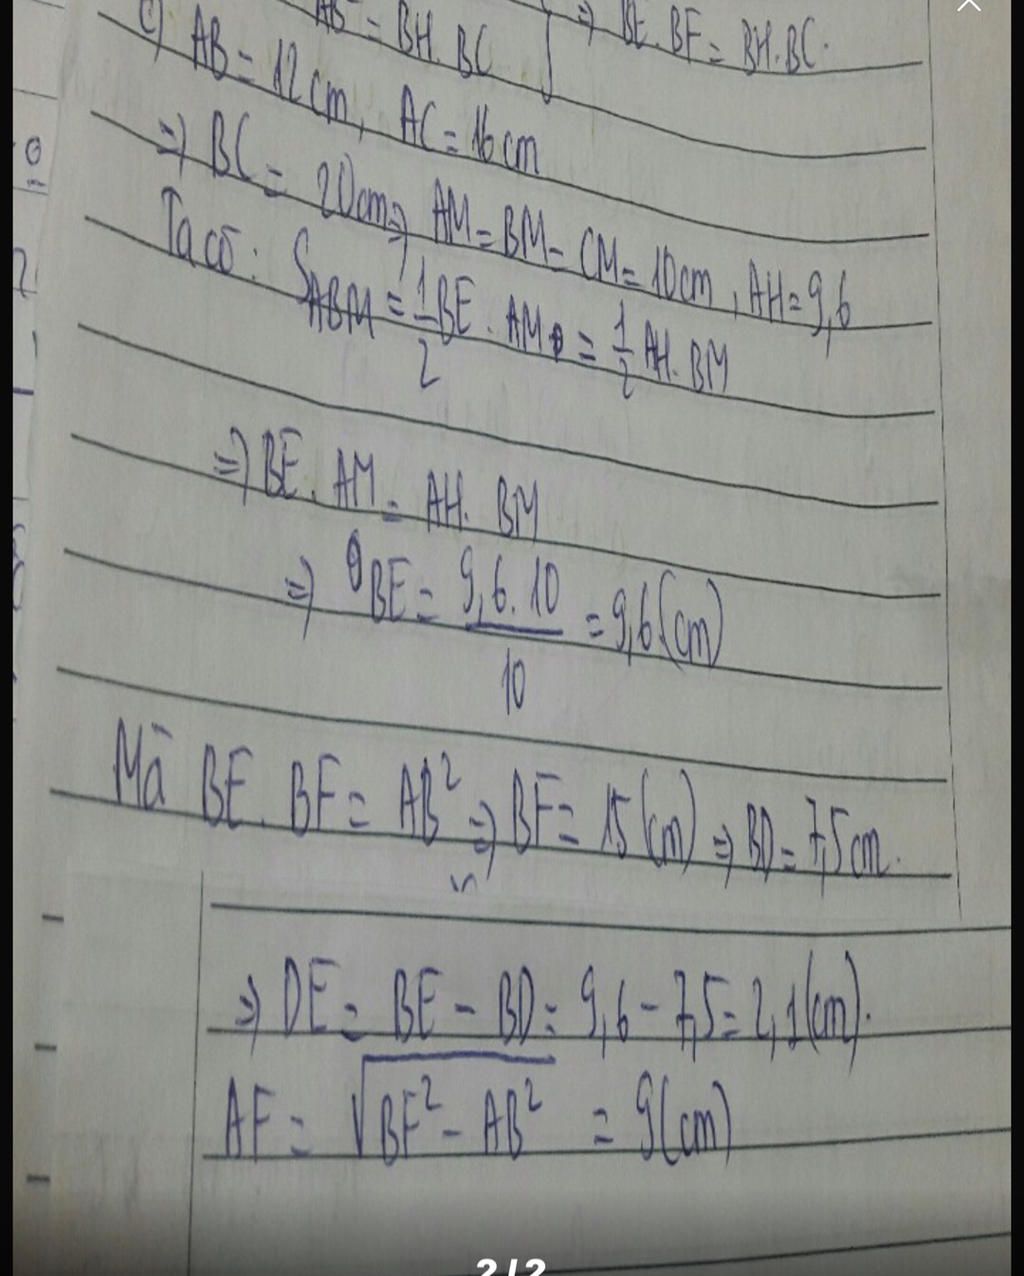 AB² = BH. BC } => BE. BF = BH. BC.
c) AB = 12 cm, AC = 16 cm
=> BC = 20cm => AM = BM = CM = 10cm, AH = 9,6
Ta có: S_ABM = 1/2 BE. AM = 1/2 AH. BM
=> BE. AM = AH. BM
=> BE = 9,6. 10 / 10 = 9,6 (cm)
Mà BE. BF = AB² => BF = 15 (cm) => BD = 7,5cm.
=> DE = BE - BD = 9,6 - 7,5 = 2,1 (cm).
AF = √BF² - AB² = 9 (cm)
2 / 2